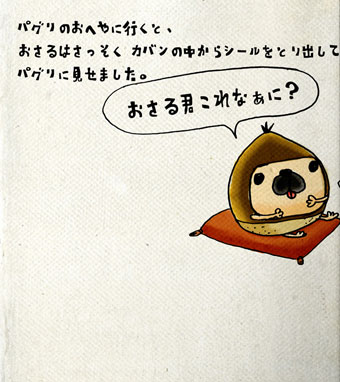 パグリのおへやに行くと、
おさるはさっそく カバンの中からシールをとり出して
パグリに見せました。
おさる君これなぁに？